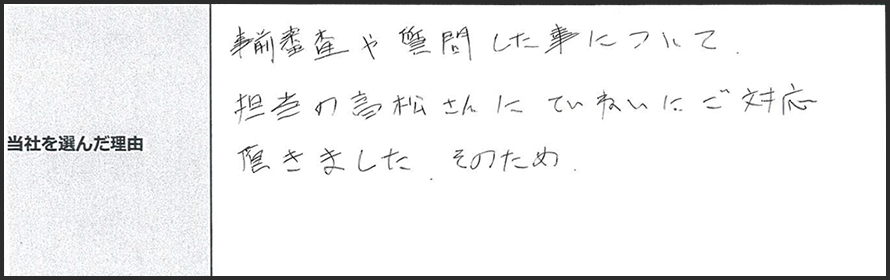 当社を選んだ理由
事前審査や質問した事について、
担当の高松さんにていねいにご対応
頂きました。そのため。